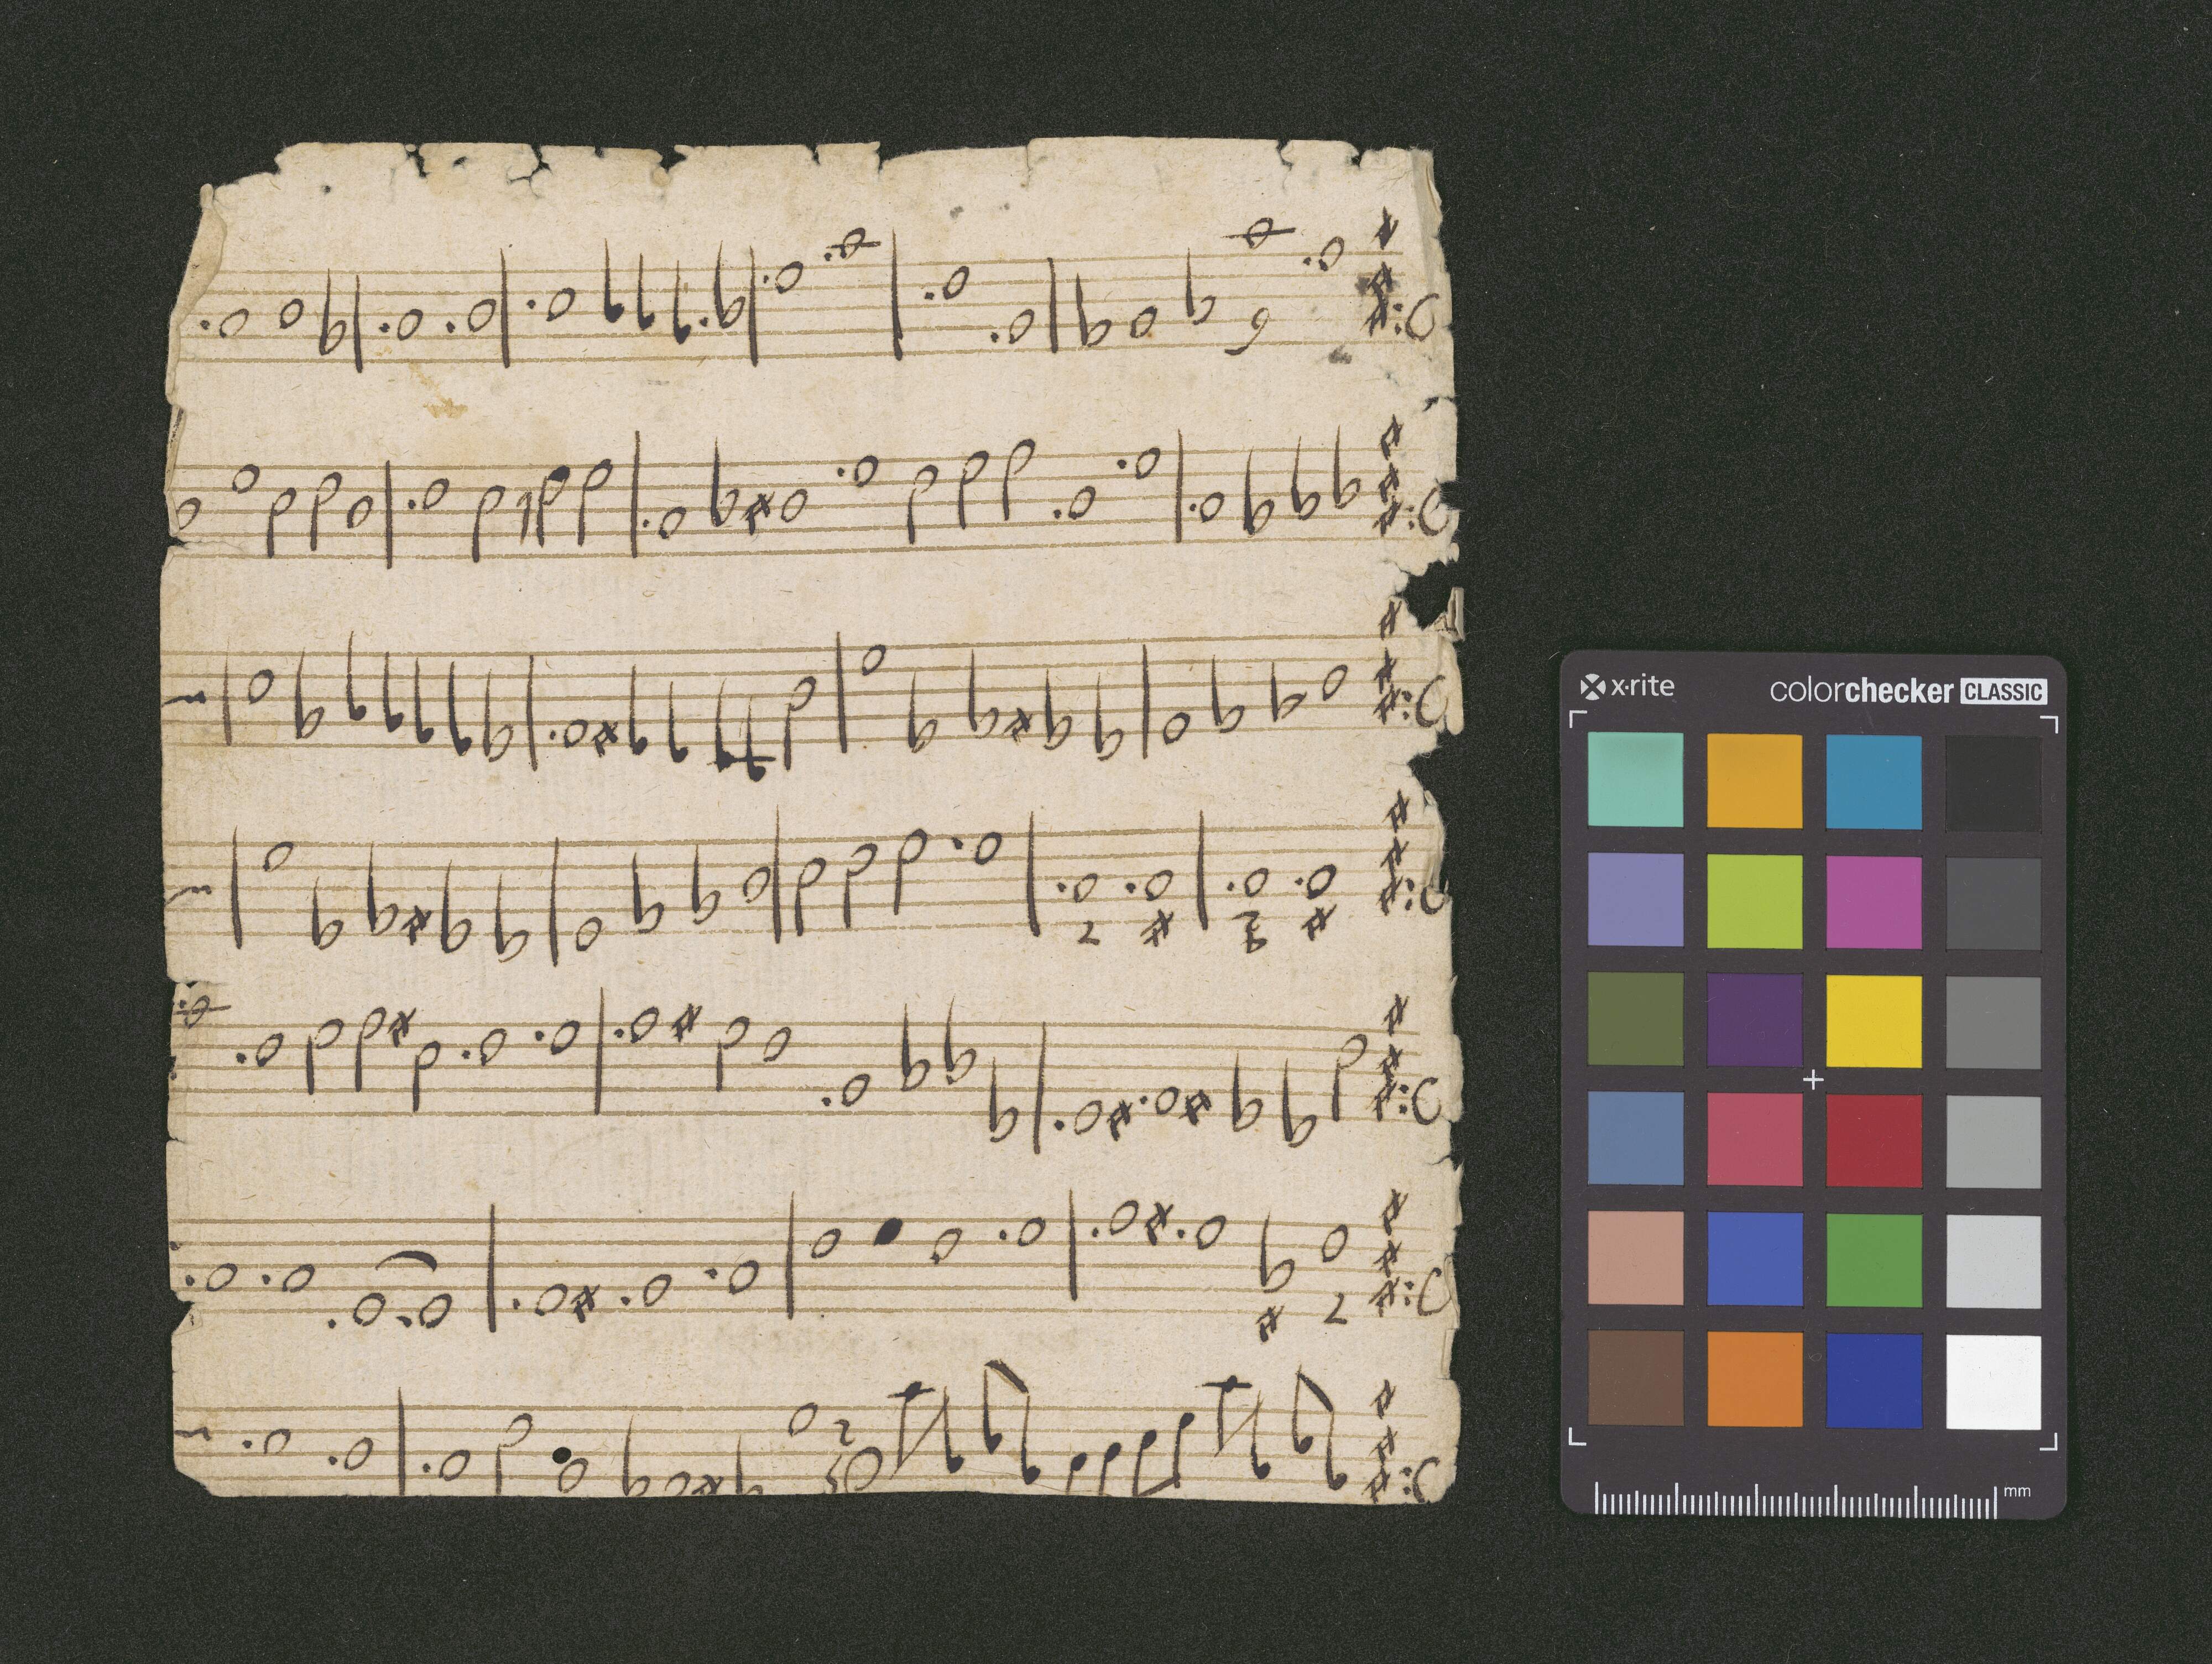 x-rite
colorchecker CLASSIC
mm
9
2
2
3
2
2